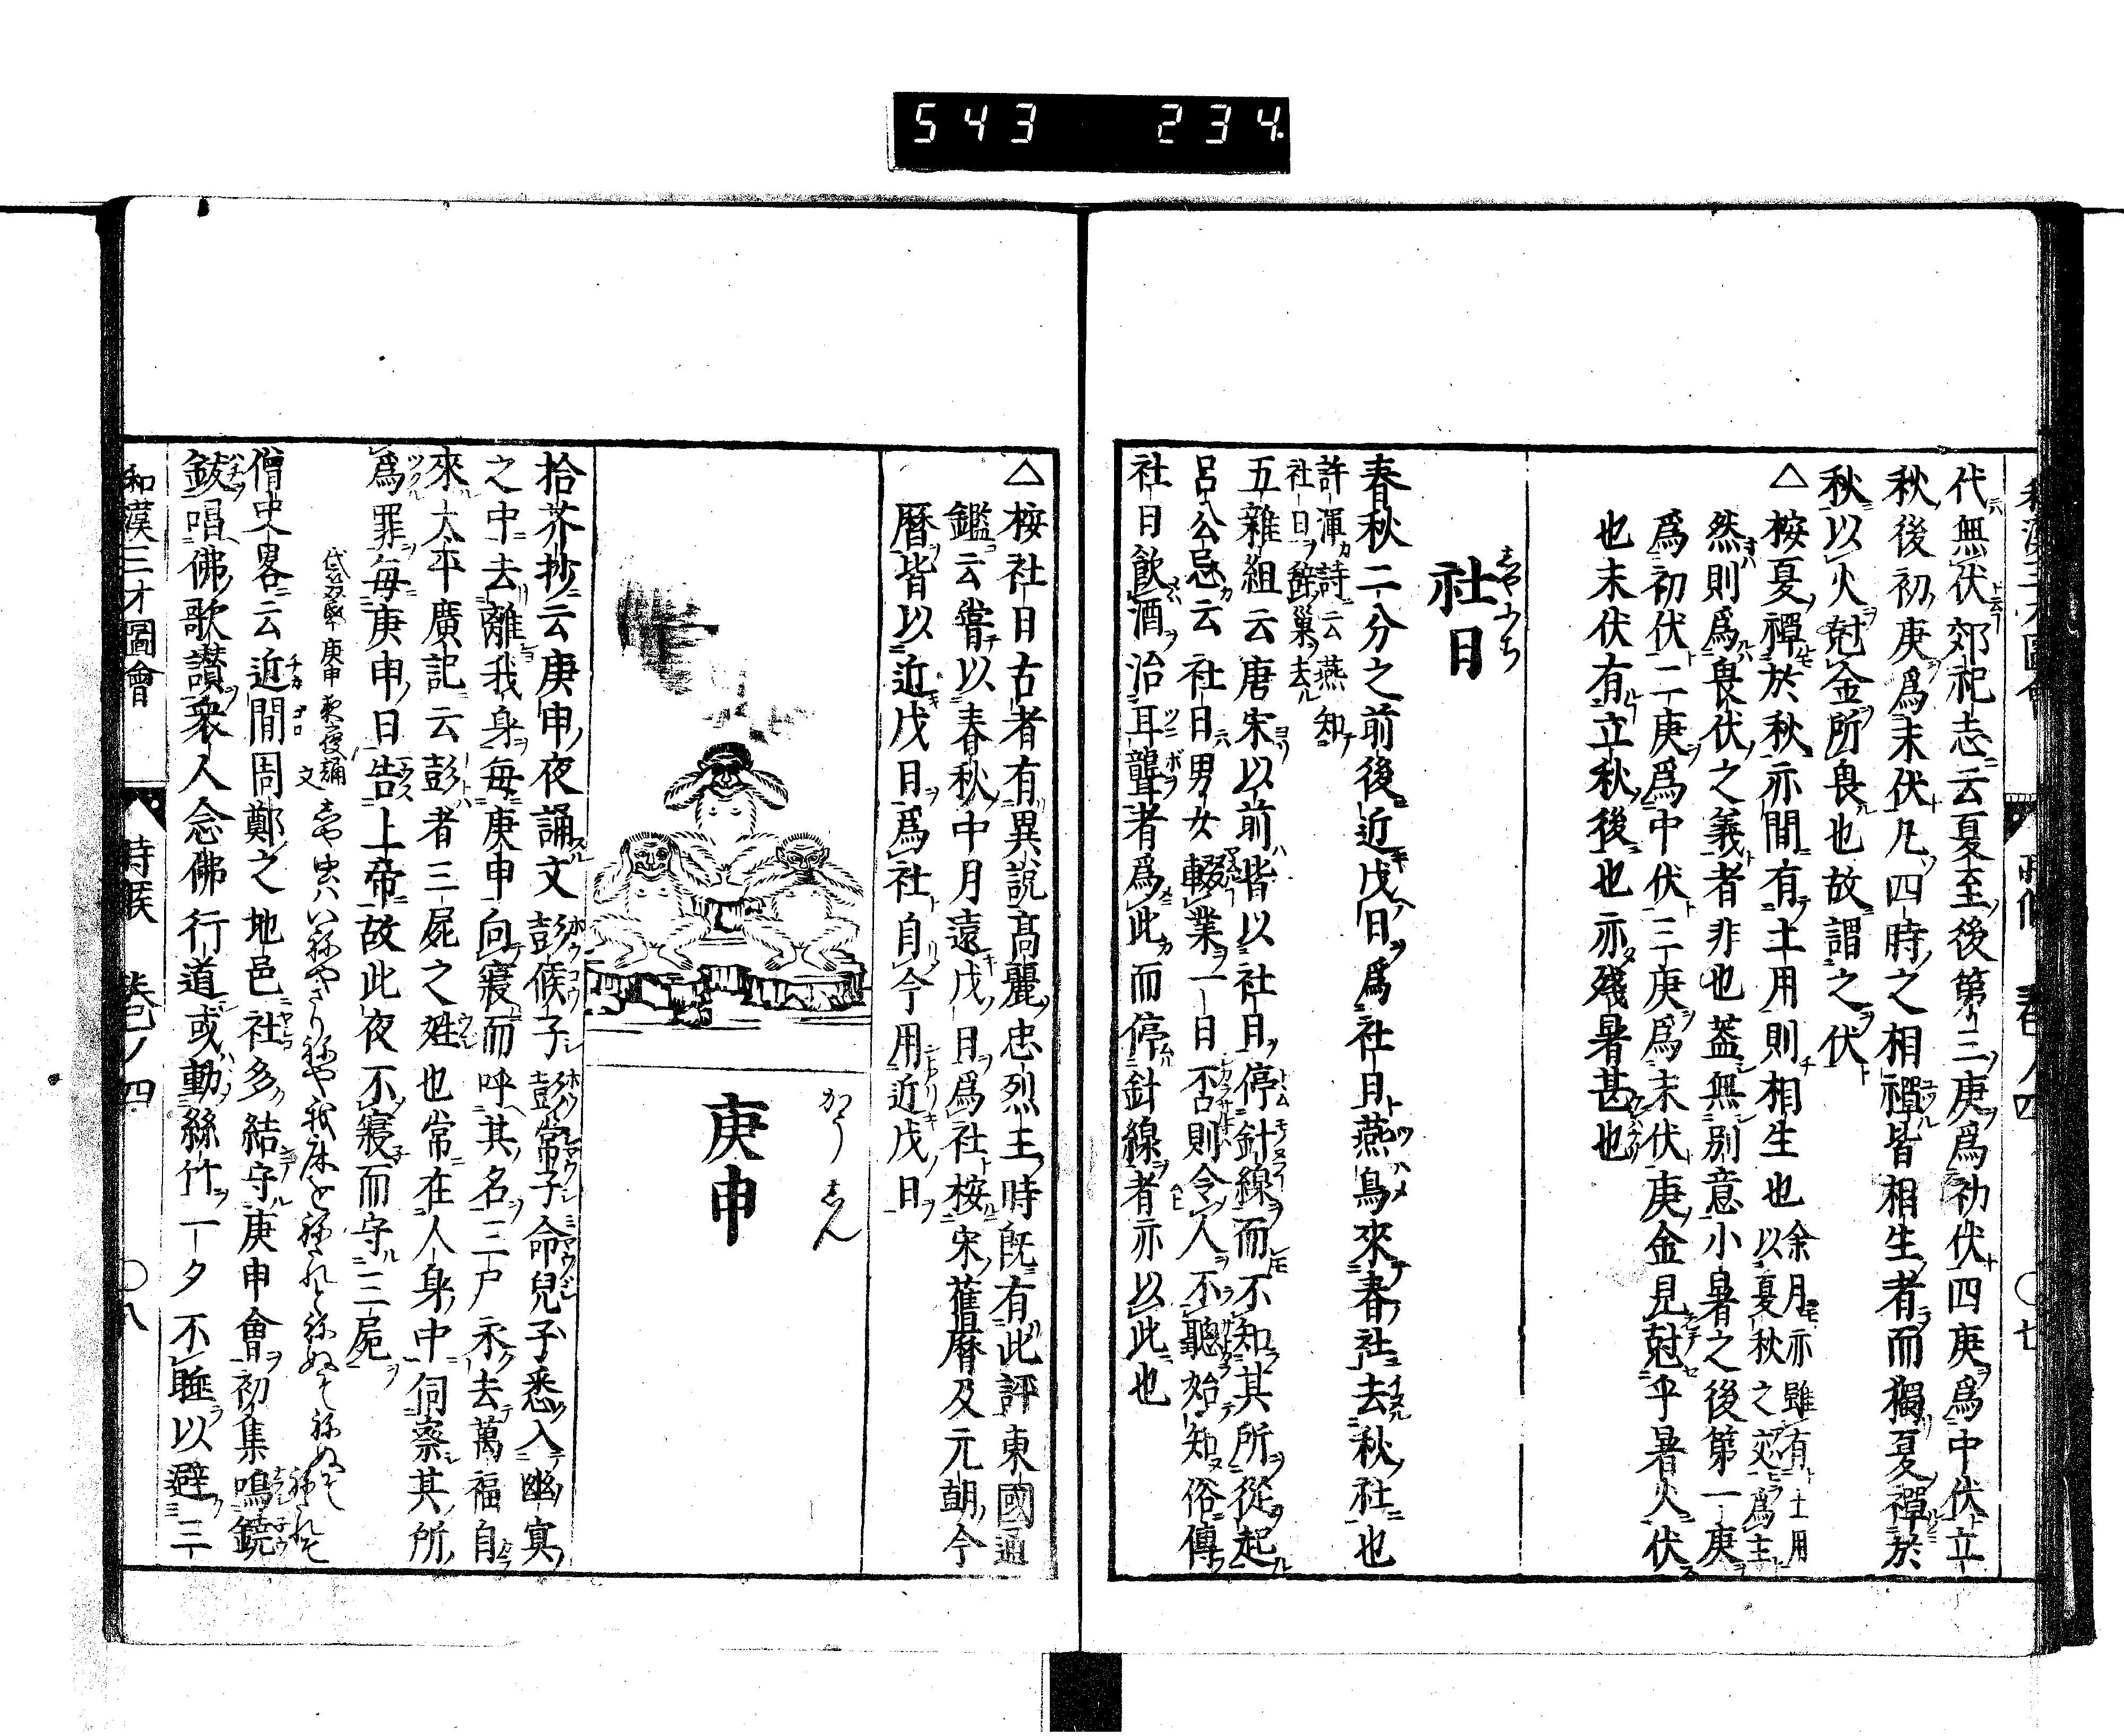 543 234
代無伏郊祀志云夏至後第三庚爲初伏四庚爲中伏立
秋後初庚爲末伏凡四時之相禪皆相生者而獨夏禪於
秋以火尅金所畏也故謂之伏
△按夏禪於秋亦間有土用則相生也余月亦雖有土用以夏秋之交爲主
然則爲畏伏之義者非也蓋無別意小暑之後第一庚
爲初伏二庚爲中伏三庚爲末伏庚金見尅乎暑火伏
也末伏有立秋後也亦殘暑甚也
社日
春秋二分之前後近戊日爲社日燕鳥來春社去秋社也
許渾詩云燕知社日辭巢去
五雜組云唐宋以前皆以社日停針線而不知其所從起
呂公忌云社日男女輟業一日否則令人不聰始知俗傳
社日飮酒治耳聾者爲此而停針線者亦以此也
△按社日古者有異說高麗忠烈王時旣有此評東國通
鑑云嘗以春秋中月遠戊日爲社按宋舊曆及元朝今
曆皆以近戊日爲社自今用近戊日
かうしん
庚申
拾芥抄云庚申夜誦文彭侯子彭常子命兒子悉入幽冥
之中去離我身每庚申向寢而呼其名三尸永去萬福自
來太平廣記云彭者三屍之姓也常在人身中伺察其所
爲罪每庚申日告上帝故此夜不寢而守三屍
庚申夜誦文
僧史畧云近間周鄭之地邑社多結守庚申會初集鳴鐃
鈸唱佛歌讃衆人念佛行道或動絲竹一夕不睡以避三
和漢三才圖會 時候 卷ノ四 〇八